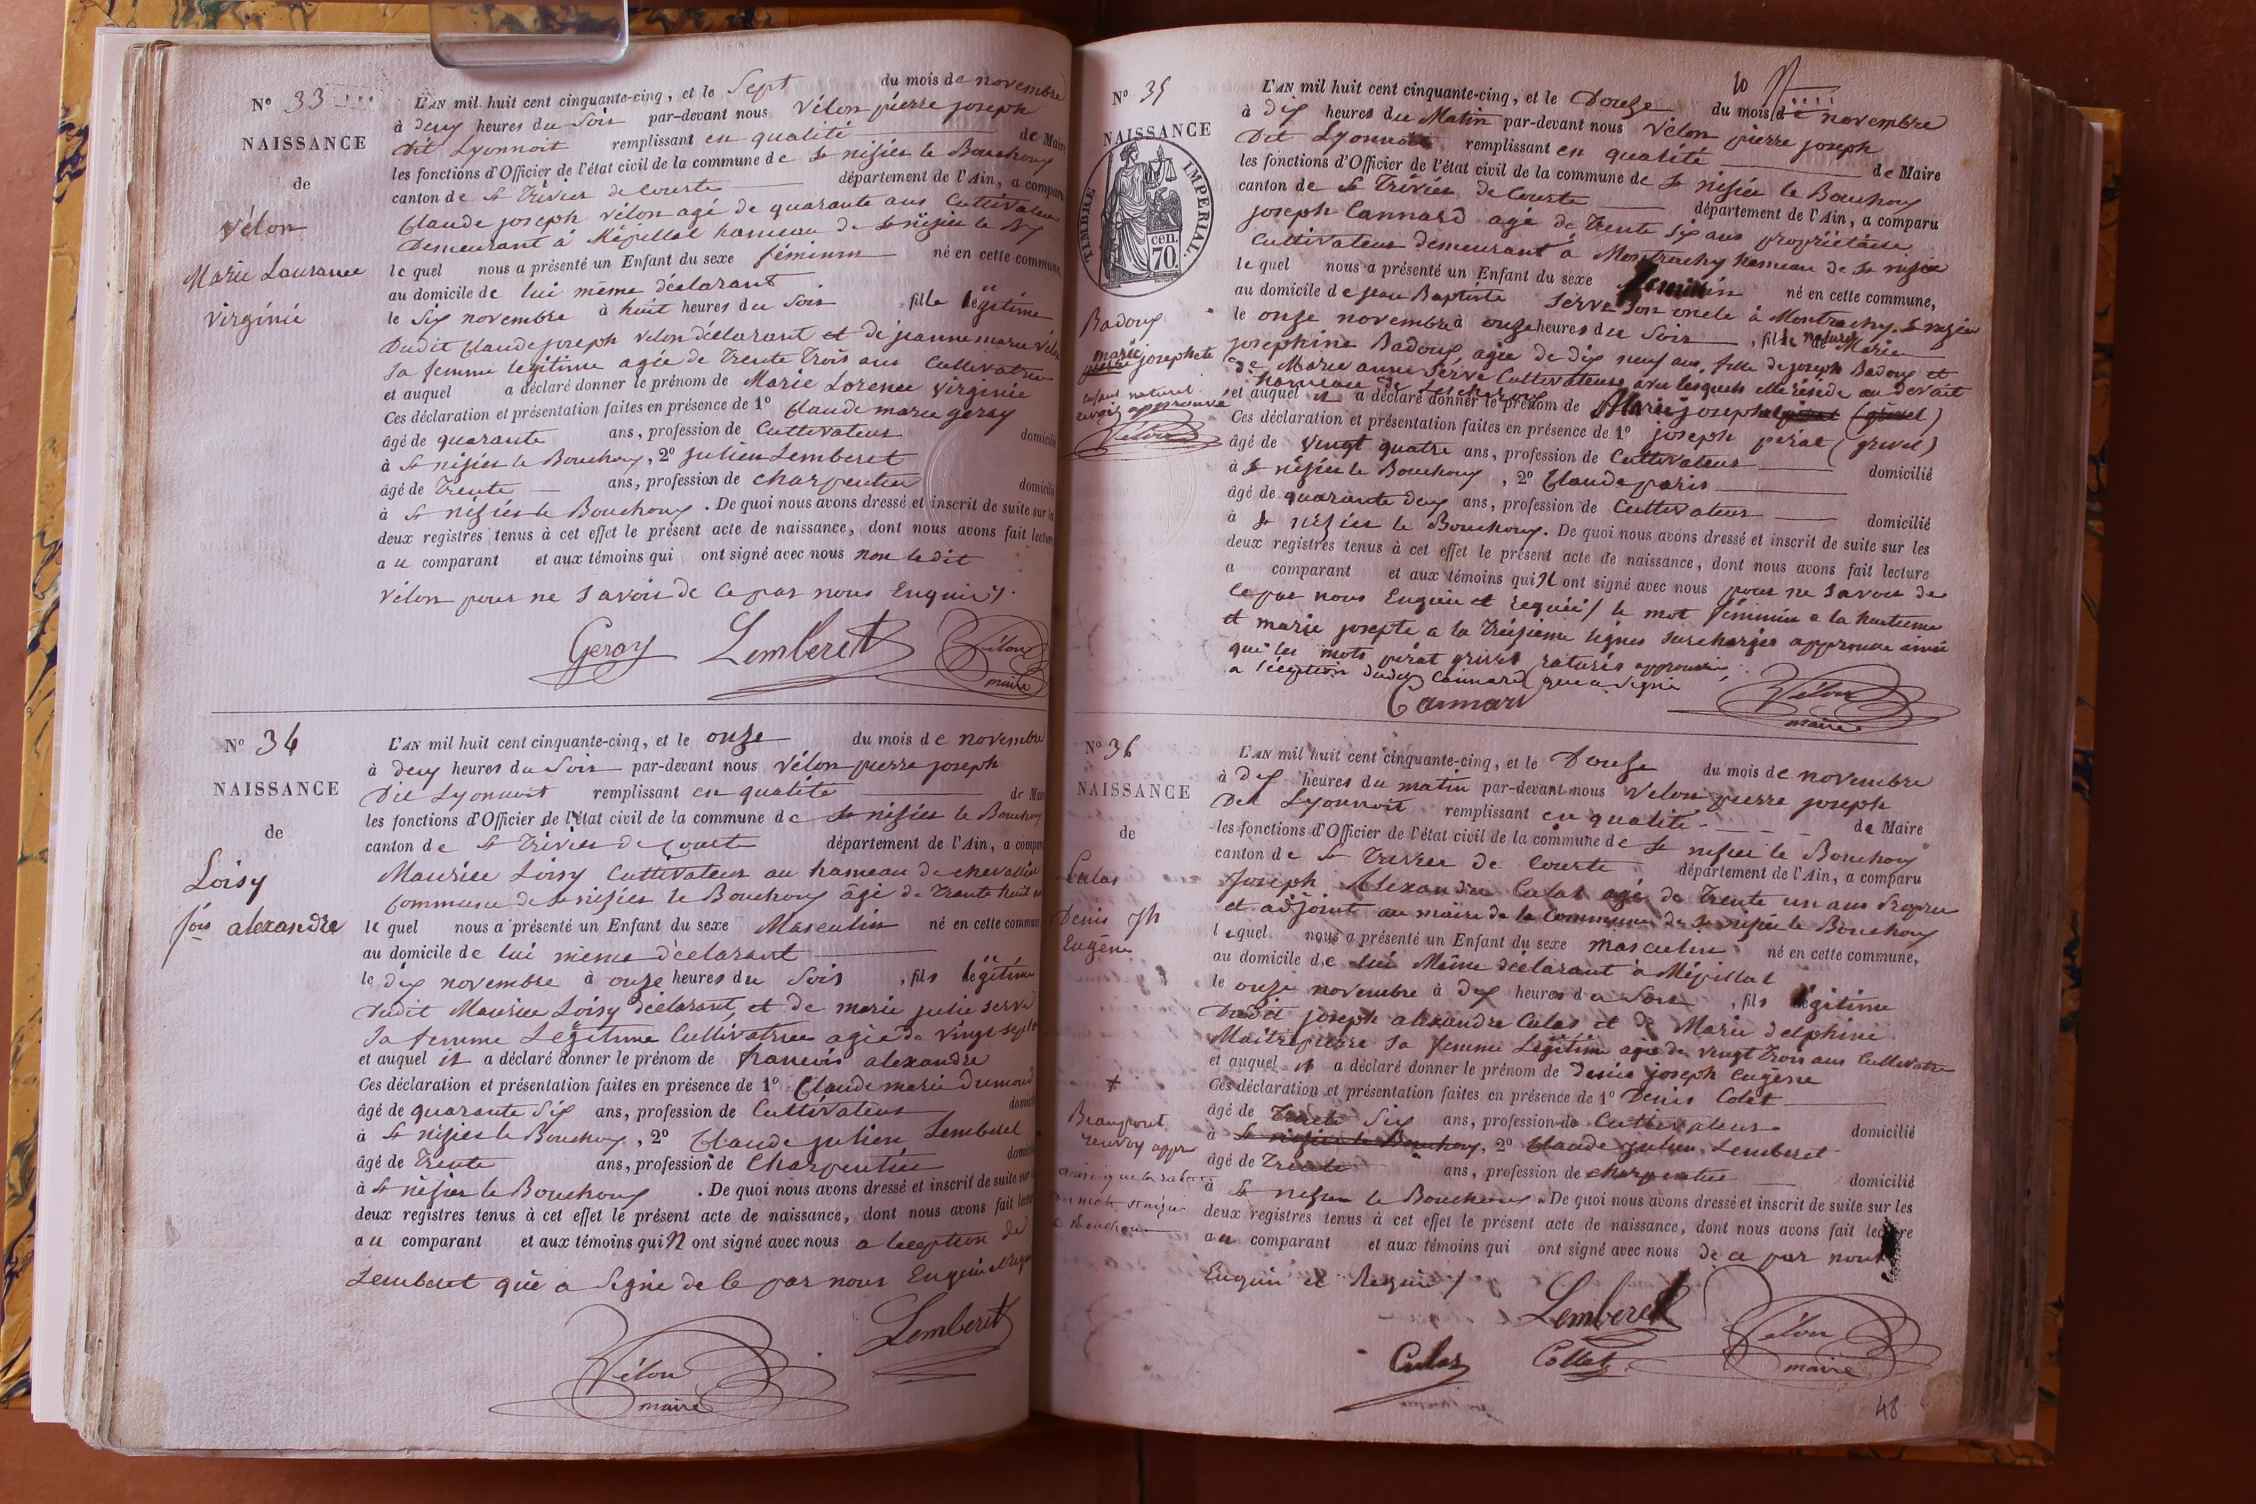 N° 33
NAISSANCE
de
Vélon
Marie Laurance
virginie
L'AN mil huit cent cinquante-cinq, et le Sept du mois de novembre
à deux heures du Soir par-devant nous Vélon pierre joseph
dit Lyonnoit remplissant en qualité de Maire
les fonctions d'Officier de l'état civil de la commune de St nisier le Bouchoux
canton de St Trivier de Courte département de l'Ain, a comparu
Claude joseph vélon agé de quarante ans Cultivateur
Demeurant à Mépillat hameau de St nisier le Bx
le quel nous a présenté un Enfant du sexe féminin né en cette commune,
au domicile de lui même déclarant
le Six novembre à huit heures du Soir , fille légitime
Dudit Claude joseph velon déclarant et de jeanne marie vélon
Sa femme légitime agée de trente trois ans Cultivatrice
et auquel a déclaré donner le prénom de Marie Lorence virginie
Ces déclaration et présentation faites en présence de 1° Claude marie geray
âgé de quarante ans, profession de Cultivateur domicilié
à St nisier le Bouchoux, 2° julien Lemberet
âgé de Trente ans, profession de charpentier domicilié
à St nisier le Bouchoux . De quoi nous avons dressé et inscrit de suite sur les
deux registres tenus à cet effet le présent acte de naissance, dont nous avons fait lecture
au comparant et aux témoins qui ont signé avec nous non le dit
vélon pour ne Savoir de ce par nous Enquis
Geray Lemberet Vélon
maire
N° 34
NAISSANCE
de
Loisy
fois alexandre
L'AN mil huit cent cinquante-cinq, et le onze du mois de novembre
à deux heures du Soir par-devant nous vélon pierre joseph
Dit Lyonnoit remplissant en qualité de Maire
les fonctions d'Officier de l'état civil de la commune de St nisier le Bouchoux
canton de St Trivier de Courte département de l'Ain, a comparu
Maurice Loisy Cultivateur au hameau de chevallin
commune de St nisier le Bouchoux âgé de trante huit
le quel nous a présenté un Enfant du sexe Masculin né en cette commune
au domicile de lui même déclarant
le dix novembre à onze heures du Soir , fils légitime
dudit Maurice Loisy déclarant, et de marie julie serve
Sa femme Légitime Cultivatrice agée de vingt sept
et auquel il a déclaré donner le prénom de francois alexandre
Ces déclaration et présentation faites en présence de 1° Claude marie Dumond
âgé de quarante Six ans, profession de Cultivateur domicilié
à St nisier le Bouchoux, 2° Claude julien Lemberet
âgé de Trente ans, profession de Charpentier domicilié
à St nisier le Bouchoux . De quoi nous avons dressé et inscrit de suite sur
deux registres tenus à cet effet le présent acte de naissance, dont nous avons fait lecture
au comparant et aux témoins qui n ont signé avec nous a lexeption de
Lemberet qui a Signé de Ce par nous Enquis
Lemberet
Vélon
maire
10
N° 35
NAISSANCE
TIMBRE IMPERIAL.
cen.
70.
Badoux
marie josephete
enfant naturel
renvoi approuvé
Vélon
L'AN mil huit cent cinquante-cinq, et le Douze du mois de novembre
à dix heures du Matin par-devant nous vélon pierre joseph
Dit Lyonnoit remplissant en qualité de Maire
les fonctions d'Officier de l'état civil de la commune de St nisier le Bouchoux
canton de St Trivier de Courte département de l'Ain, a comparu
joseph Cannard agé de Trente Six ans propriétaire
Cultivateur demeurant à Montrachy hameau de St nisier
le quel nous a présenté un Enfant du sexe féminin né en cette commune,
au domicile de jean Baptiste Serve Son oncle à Montrachy St nisier
le onze novembre à onze heures du Soir , fille naturel de Marie
josephine Badoux, agée de dix neuf ans, fille de joseph Badoux et
de Marie anne Serve Cultivateurs avec lesquels elle réside au Devait
hameau de
et auquel il a déclaré donner le prénom de Marie josephete
Ces déclaration et présentation faites en présence de 1° joseph pérat (grivel)
âgé de vingt quatre ans, profession de Cultivateur domicilié
à St nisier le Bouchoux, 2° Claude paris
âgé de quarante deux ans, profession de Cultivateur domicilié
à St nisier le Bouchoux. De quoi nous avons dressé et inscrit de suite sur les
deux registres tenus à cet effet le présent acte de naissance, dont nous avons fait lecture
a comparant et aux témoins qui n ont signé avec nous pour ne Savoir de
Ce par nous Enquis et requis / le mot féminin a la huitieme
et marie josepte a la treizieme lignes surchargés approuvé ainsi
que les mots pérat grivel raturés approuvés
a l'exeption dudit Cannard qui a Signé
Cannard Vélon
maire
N° 36
NAISSANCE
de
Culas
Denis jph
Eugène
L'AN mil huit cent cinquante-cinq, et le Douze du mois de novembre
à dix heures du matin par-devant nous Velon pierre joseph
Dit Lyonnoit remplissant en qualité de Maire
les fonctions d'Officier de l'état civil de la commune de St nisier le Bouchoux
canton de St Trivier de Courte département de l'Ain, a comparu
Joseph Alexandre Culas agé de Trente un ans Propre
et adjoint au maire de la Commune de St nisier le Bouchoux
lequel nous a présenté un Enfant du sexe masculin né en cette commune,
au domicile de lui Même déclarant à Mépillat
le onze novembre à dix heures du Soir , fils légitime
Dudit joseph alexandre Culas et de Marie delphine
Maitrepierre Sa femme Légitime agée de vingt trois ans Cultivatrice
et auquel il a déclaré donner le prénom de denis joseph Eugène
Ces déclaration et présentation faites en présence de 1° Denis Colet
âgé de Trente Six ans, profession de Cultivateur domicilié
à St nisier le Bouchoux, 2° Claude julien Lemberet
âgé de Trente ans, profession de charpentier domicilié
à St nisier le Bouchoux . De quoi nous avons dressé et inscrit de suite sur les
deux registres tenus à cet effet le présent acte de naissance, dont nous avons fait lecture
au comparant et aux témoins qui ont signé avec nous de ce par nous
Enquis et Requis /
Beaupont
renvoy appr
Lemberet
Culas Collet Vélon
maire
48